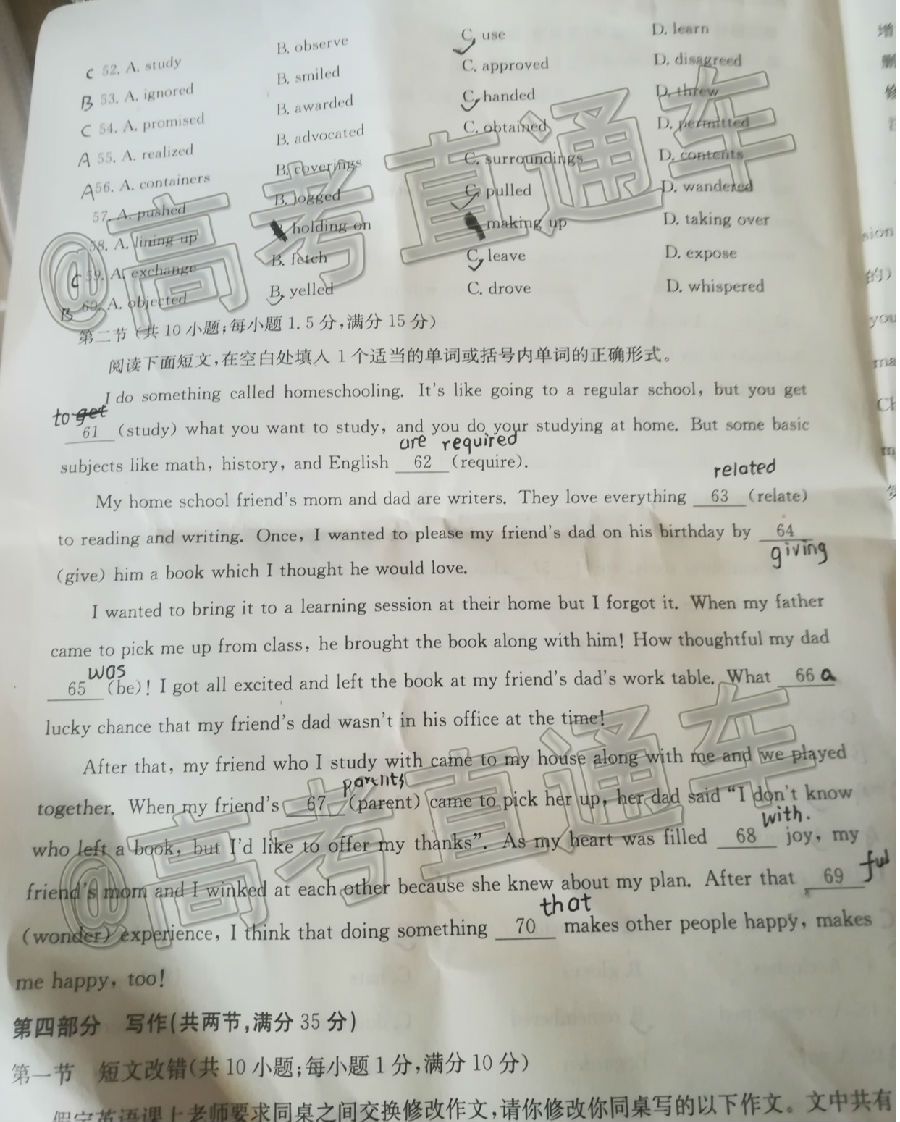 C 52. A. study B. observe C. use D. learn
B 53. A. ignored B. smiled C. approved D. disagreed
C 54. A. promised B. awarded C. handed D. threw
A 55. A. realized B. advocated C. obtained D. permitted
A 56. A. containers B. coverings C. surroundings D. contents
57. A. pushed B. jogged C. pulled D. wandered
58. A. lining up holding on making up D. taking over
C 59. A. exchange B. fetch C. leave D. expose
B 60. A. objected B. yelled C. drove D. whispered
第二节(共10小题;每小题1.5分,满分15分)
阅读下面短文,在空白处填入1个适当的单词或括号内单词的正确形式。
I do something called homeschooling. It's like going to a regular school, but you get
to get
61 (study) what you want to study, and you do your studying at home. But some basic
are required
subjects like math, history, and English 62 (require).
related
My home school friend's mom and dad are writers. They love everything 63 (relate)
to reading and writing. Once, I wanted to please my friend's dad on his birthday by 64
giving
(give) him a book which I thought he would love.
I wanted to bring it to a learning session at their home but I forgot it. When my father
came to pick me up from class, he brought the book along with him! How thoughtful my dad
was
65 (be)! I got all excited and left the book at my friend's dad's work table. What 66 a
lucky chance that my friend's dad wasn't in his office at the time!
After that, my friend who I study with came to my house along with me and we played
parents
together. When my friend's 67 (parent) came to pick her up, her dad said "I don't know
with.
who left a book, but I'd like to offer my thanks". As my heart was filled 68 joy, my
friend's mom and I winked at each other because she knew about my plan. After that 69 ful
that
(wonder) experience, I think that doing something 70 makes other people happy, makes
me happy, too!
第四部分 写作(共两节,满分35分)
第一节 短文改错(共10小题;每小题1分,满分10分)
假定英语课上老师要求同桌之间交换修改作文,请你修改你同桌写的以下作文。文中共有
@高考直通车
@高考直通车
增
删
修
sion
的)
you
ma
Ch